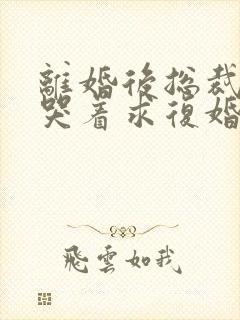 離婚後总裁
哭着求復婚
飛雲如我